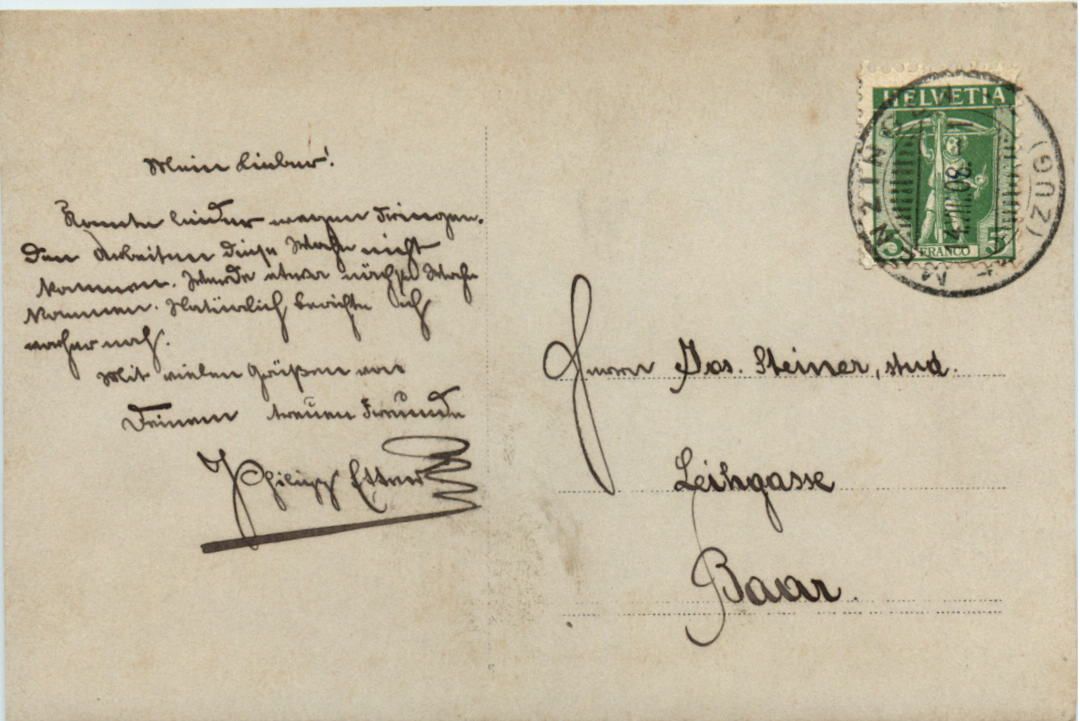 Mein Lieber!
Konnte leider wegen dringen-
den Arbeiten diese Woche nicht
kommen. Werde etwa nächste Woche
kommen. Natürlich berichte ich
vorher noch.
Mit vielen Grüßen von
Deinem treuen Freunde
Philipp Etter
HELVETIA
5 FRANCO 5
MENZINGEN
(ZUG)
Herrn Jos. Steiner, stud.
Leihgasse
Baar.